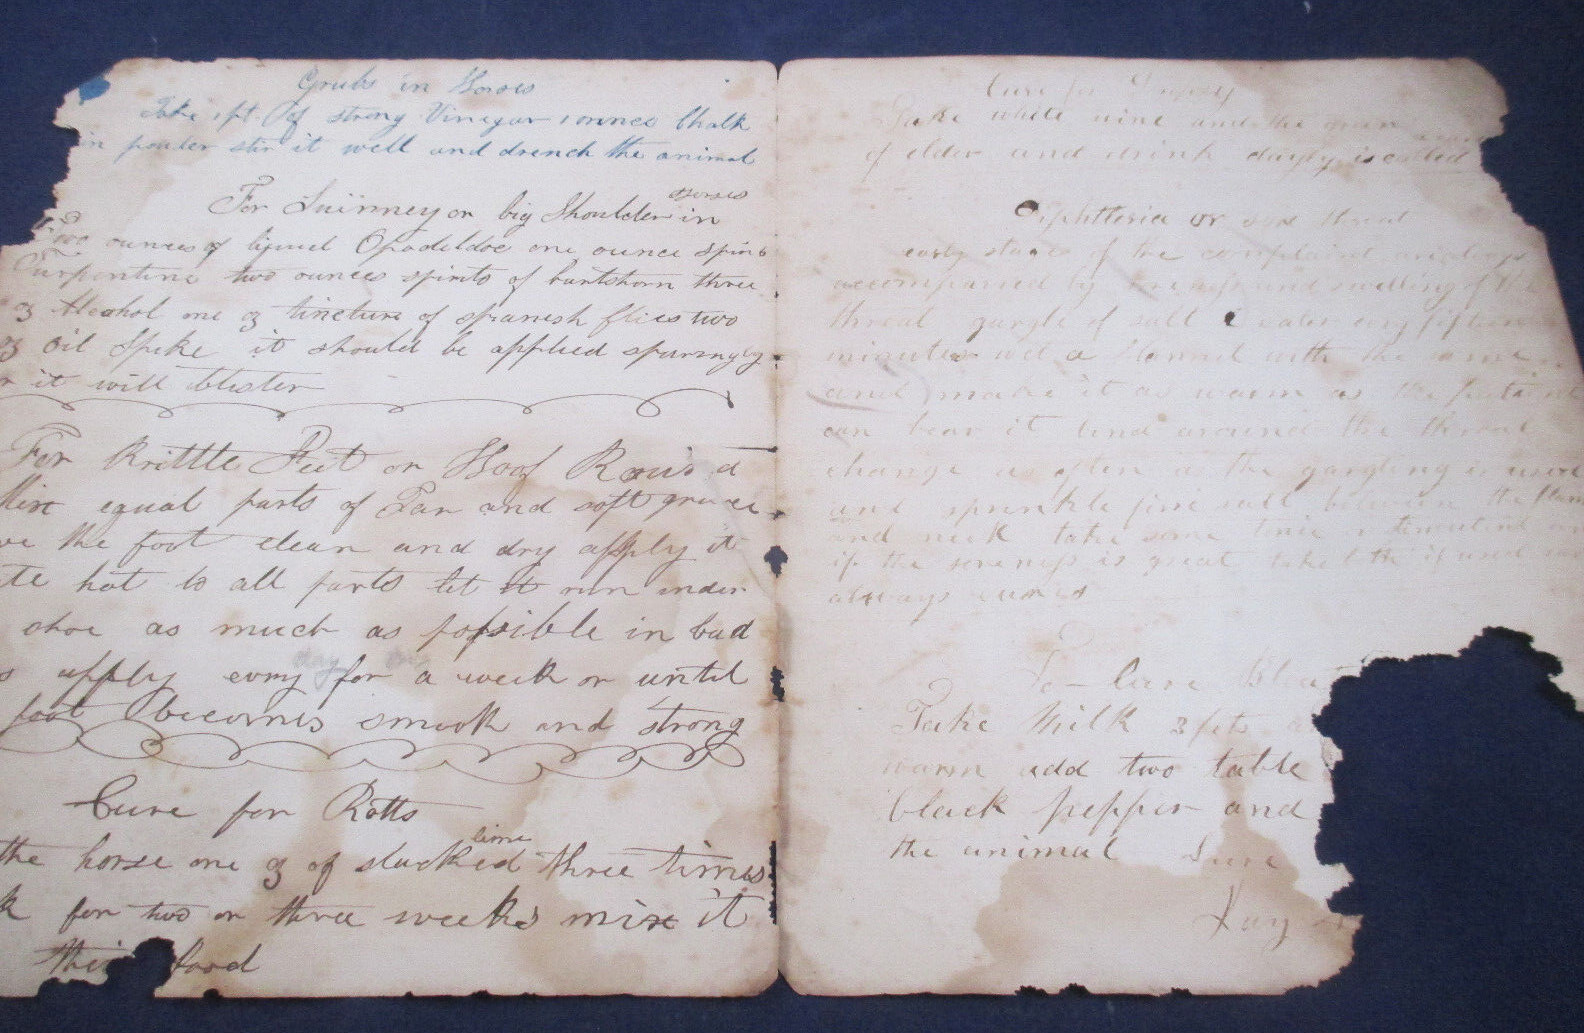 Grubs in Horses
Take 1 pt. of strong Vinegar 1 ounce Chalk
in pouder stir it well and drench the animal
For Suinney or big Shoulder in horses
Two ounces of liquid Opodeldoc one ounce spirits
Turpentine two ounces spirits of hartshorn three
oz Alcohol one oz tincture of spanish flies two
oz oil Spike it should be applied sparingly
or it will blister
For Brittle Feet or Hoof Bound
Mix equal parts of Tar and soft grease
ve the foot clean and dry apply it
te hot to all parts let it run under
shoe as much as possible in bad
s apply evry day for a week or until
foot becomes smooth and strong
Cure for Botts
the horse one oz of slacked lime three times
k for two or three weeks mix it
food
Cure for Dropsy
Take white wine and the green
of elder and drink dayly is called
Diphtheria or sore throat
early stages of the complaint
accompanied by soreness and swelling of the
throat gargle of salt & water evry fifteen
minutes wet a flannel with the same
and make it as warm as the patient
can bear it bind around the throat
change as often as the gargling is used
and sprinkle fine salt between the flannel
and neck take some
if the soreness is great take both if used
always cures
To Cure
Take Milk 3 pts
warm add two table
black pepper and
the animal Sure